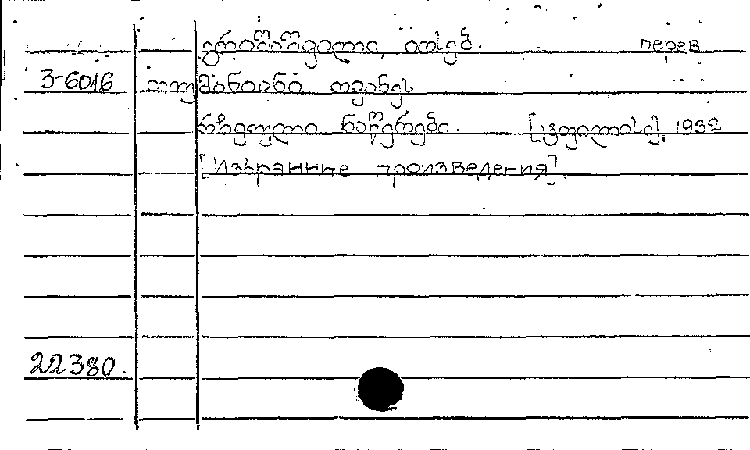 გრიშაშვილი, იოსებ. перев
3-6016 თუმანიანი ოვანეს
რჩეული ნაწერები. [ტფილისი], 1932
[Избранные произведения].
22380.